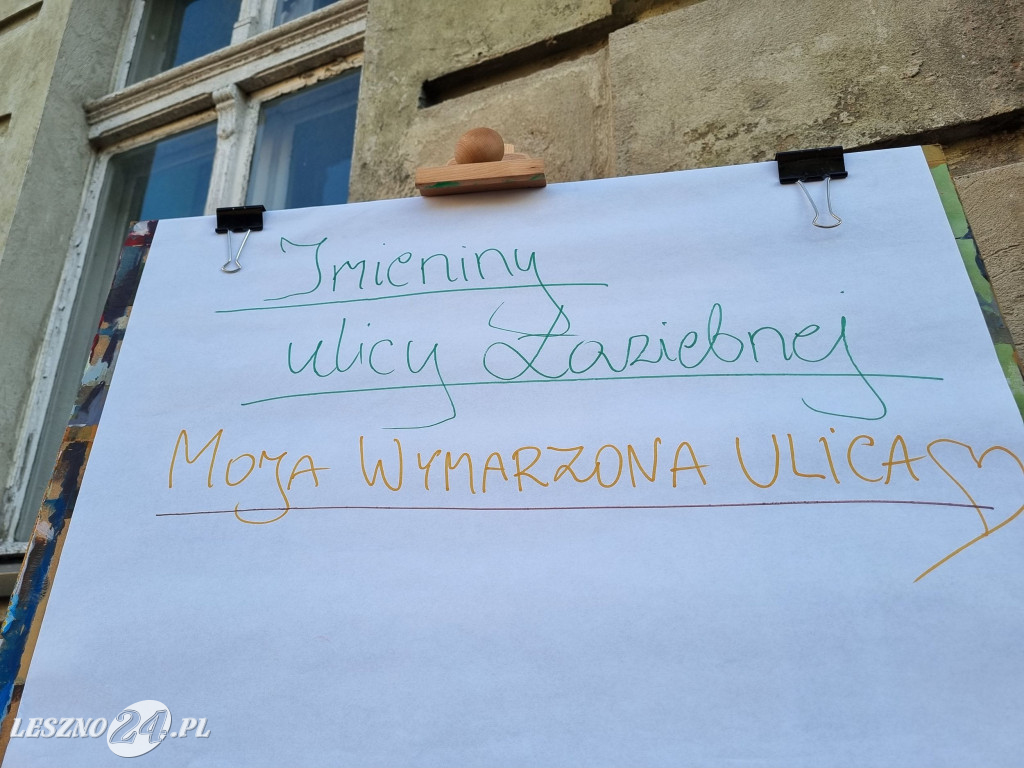 Imieniny
ulicy Łaziebnej
MOJA WYMARZONA ULICA
LESZNO24.PL